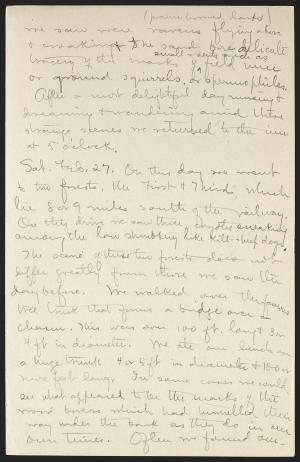 (prairie horned larks)
we saw were ravens flying above
& croaking & the sand bore delicate
tracery of the marks of field mice
small-rents such as
or ground squirrels, or spermophiles.
After a most delightful day musing &
dreaming & wandering amid these
strange scenes we returned to the inn
at 5 o'clock.
Sat. Feb. 27. On this day we went
to two forests, the First & Third which
lie 8 or 9 miles south of the railway.
On this drive we saw three coyotes sneaking
among the low shrubbery like kill-sheep dogs.
The scene of these two forests does not
differ greatly from those we saw the
day before. We walked over the famous
tree trunk that forms a bridge over a
chasm. This was over 100 ft. long & 3 or
4 ft in diameter. We ate our lunch on
a huge trunk 4 or 5 ft in diameter & 100 or
more feet long. In some cases we could
see what appeared to be the marks of the
wood borers which had tunnelled their
way under the bark as they do in our
own times. Often we found our-